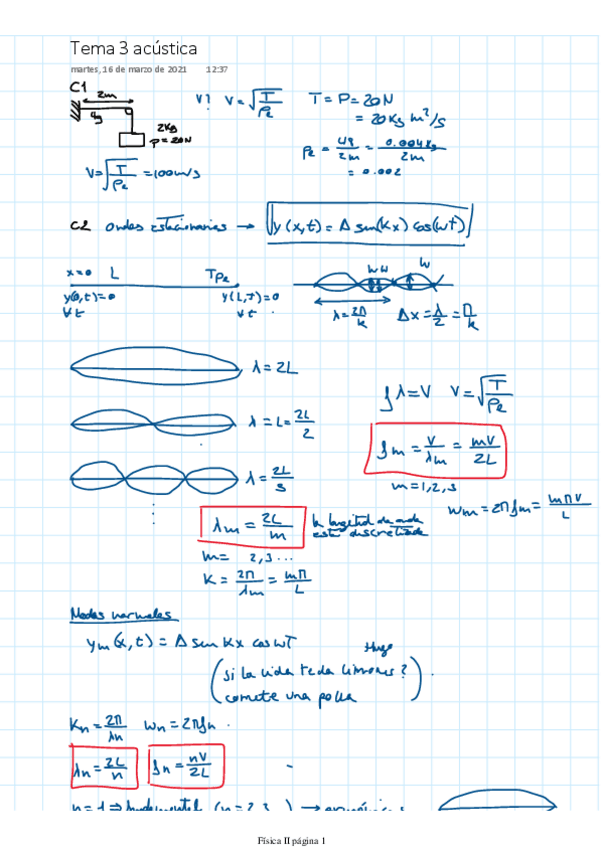 Tema 3 acústica
martes, 16 de marzo de 2021 12:37
C1
2m
4g
2Kg
P=20N
V? V=√(T/ρe) T = P = 20N
= 20Kg m²/s
ρe = 4g/2m = 0.004Kg/2m
= 0.002
V=√(T/ρe) = 100m/s
C2 Ondas estacionarias → y(x,t) = A sen(Kx) cos(wt)
x=0 L T ρe
y(0,t)=0 y(L,t)=0
∀t ∀t
λ=2π/k Δx = λ/2 = π/k
λ = 2L
fλ=V V=√(T/ρe)
λ = L = 2L/2
fm = V/λm = mV/2L
λ = 2L/3
m=1,2,3
wm = 2πfm = mπV/L
λm = 2L/m la longitud de onda está discretizada
m= 2,3...
K = 2π/λm = mπ/L
Modos normales
ym(x,t) = A sen Kx cos wT
Hugo
(si la vida te da limones?
comete una polla)
Kn = 2π/λn wn = 2πfn
λn = 2L/n fn = nV/2L
n = 1 ⇒ fundamental (n = 2, 3...) → armónicos
Física II página 1